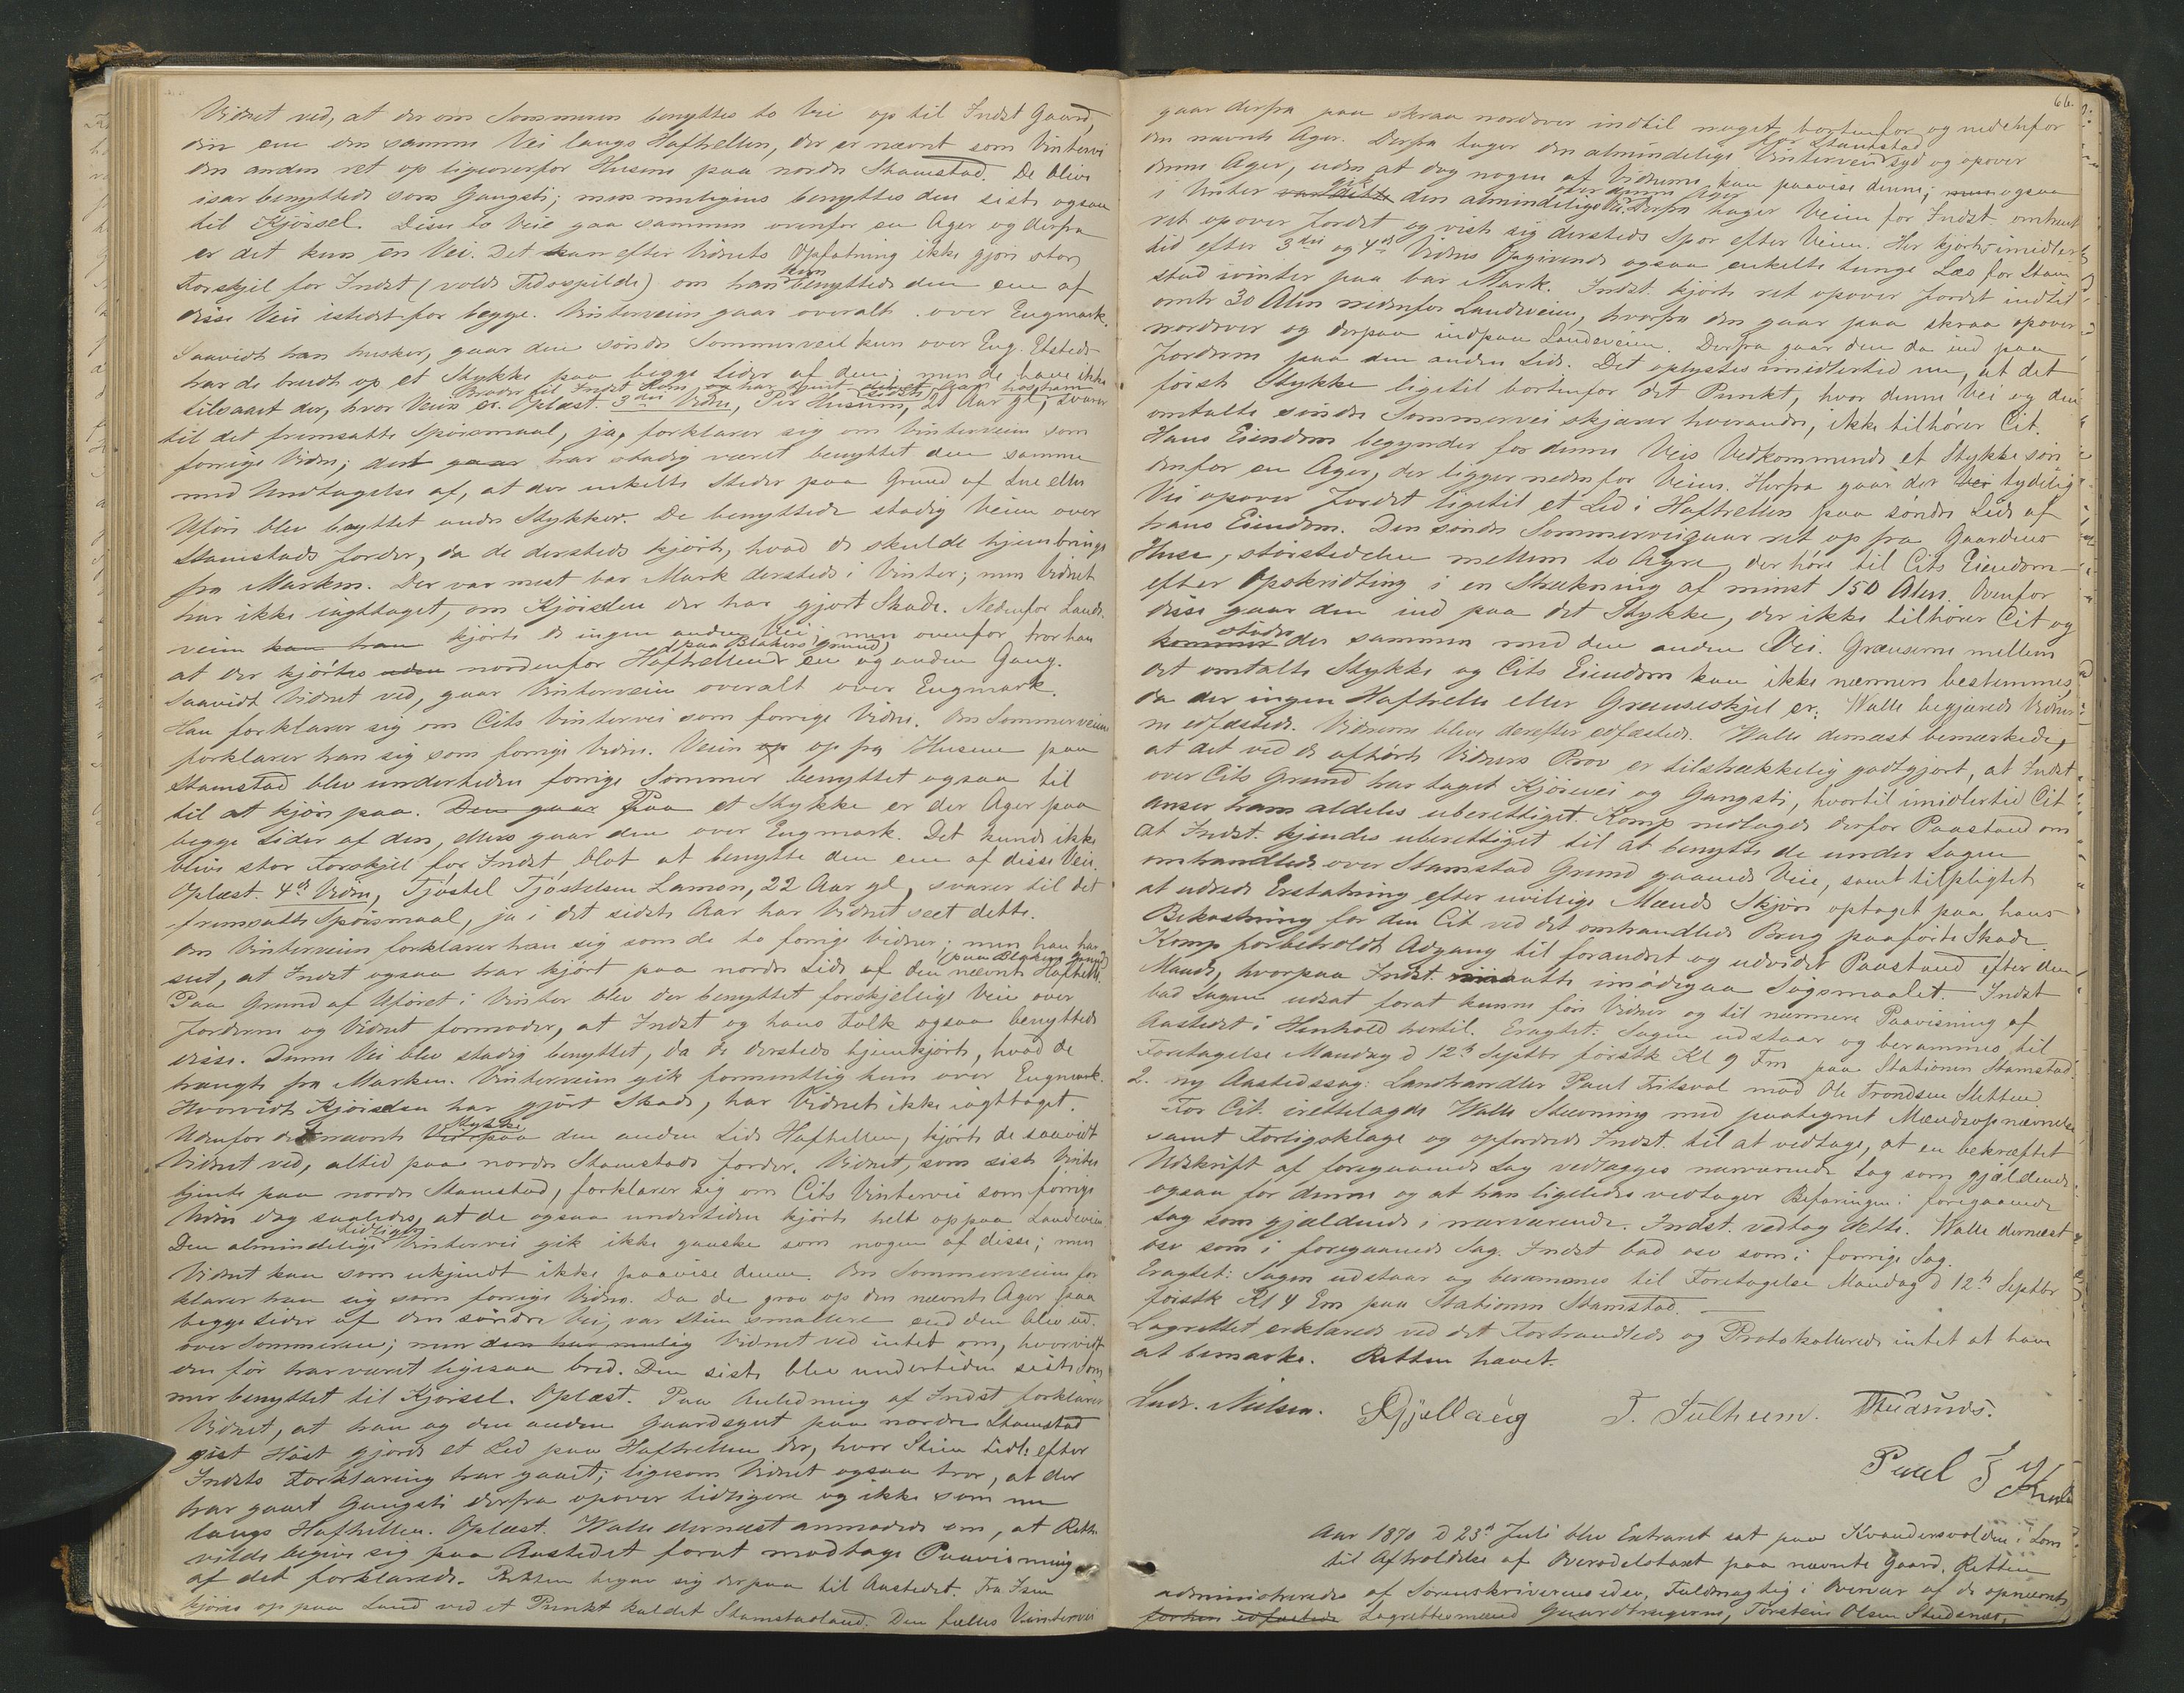 Vidnet ved, at der om Sommeren benyttes to Veie op til Indst Gaard,
den ene den samme Vei langs Haftrellen, der er nævnt som Vintervei
den anden ret op ligeoverfor Husene paa nordre Stamstad. De bleve
især benyttede som Gangsti; men muligens benyttes den siste ogsaa
til Kjørsel. Disse to Veie gaa sammen ovenfor en Ager og derfra
er det kun en Vei. Det kan efter Vidnets Opfatning ikke gjøre stor
Forskjel for Indst (volde Tidsspilde) om han kun benyttede den ene af
disse Veie istedetfor begge. Vinterveien gaar overalt over Engmark.
Saavidt han husker, gaar den søndre Sommervei kun over Eng. Etsteds
har de brudt op et Stykke paa begge Sider af den; men de have ikke
tilsaaet der, hvor Veien er. Oplæst. 3die Vidne, Per Husum, 21 Aar gl, svarer
Broder til Indst som og har tjent sidste Aar hos ham
til det fremsatte Spørsmaal, ja, forklarer sig om Vinterveien som
forrige Vidne; dest gaar har stadig været benyttet den samme
med Undtagelse af, at der enkelte Steder paa Grund af Sne eller
Uføre blev benyttet andre Stykker. De benyttede stadig Veien over
Stamstads Jorder, da de dersteds kjørte, hvad de skulde hjembringe
fra Marken. Der var mest bar Mark dersteds i Vinter; men Vidnet
har ikke iagttaget, om Kjørselen der har gjort Skade. Nedenfor Lande
veien kan han kjørte de ingen anden Vei; men ovenfor tror han
at der kjørtes uden nordenfor Haftrellen (paa Blakers Grund) en og anden Gang.
Saavidt Vidnet ved, gaar Vinterveien overalt over Engmark.
Han forklarer sig om Cits Vintervei som forrige Vidne. Om Sommerveien
forklarer han sig som forrige Vidne. Veien op op fra Husene paa
Stamstad blev undertiden forrige Sommer benyttet ogsaa til
til at kjøre paa. Den gaar Paa et Stykke er der Ager paa
begge Sider af den, ellers gaar den over Engmark. Det kunde ikke
blive stor Forskjel for Indst, blot at benytte den ene af disse Veie.
Oplæst. 4de Vidne, Tjøstel Tjøstelsen Lamøn, 22 Aar gl, svarer til det
fremsatte Spørsmaal, ja i det sidste Aar har Vidnet seet dette.
Om Vinterveien forklarer han sig som de to forrige Vidner; men han har
seet, at Indst ogsaa har kjørt paa nordre Side af den nævnte Haftrelle (paa Blakers Grund)
Paa Grund af Uføret i Vinter blev der benyttet forskjellige Veie over
Jorderne og Vidnet formoder, at Indst og hans Folk ogsaa benyttede
disse. Denne Vei blev stadig benyttet, da de dersteds hjemkjørte, hvad de
trængte fra Marken. Vinterveien gik formentlig kun over Engmark.
Hvorvidt Kjørselen har gjort Skade, har Vidnet ikke iagttaget.
Udenfor det nævnte Stykke paa den anden Side Haftrellen, kjørte de saavidt
Vidnet ved, altid paa nordre Stamstads Jorder. Vidnet, som siste Vinter
tjente paa nordre Stamstad, forklarer sig om Cits Vintervei som forrige
Vidne dog saaledes, at de ogsaa undertiden kjørte helt op paa Landeveien
Den almindelige tidligere Vintervei gik ikke ganske som nogen af disse; men
Vidnet kan som ukjendt ikke paavise denne. Om Sommerveien for
klarer han sig som forrige Vidne. Da de grov op den nævnte Ager paa
begge Sider af den søndre Vei, var Stien smallere end den blev ud
over Sommeren; men den har mulig Vidnet ved intet om, hvorvidt
den før har været ligesaa bred. Den siste blev undertiden siste Som
mer benyttet til Kjørsel. Oplæst. Paa Anledning af Indst forklarer
Vidnet, at han og den anden Gaardsgut paa nordre Stamstad
sist Høst gjorde et Led paa Haftrellen der, hvor Stien tidl. efter
Indsts Forklaring har gaaet; ligesom Vidnet ogsaa tror, at der
har gaaet Gangsti derfra opover tidligere og ikke som nu
langs Haftrellen. Oplæst. Walle dernæst anmodede om, at Retten
vilde begive sig paa Aastedet forat modtage Paavisning
af det forklarede. Retten begav sig derpaa til Aastedet. Fra Isen
kjøres op paa Land ved et Punkt kaldet Stamstadland. Den fælles Vintervei
66.
gaar derfra paa skraa nordover indtil noget bortenfor og nedenfor
den nævnte Ager. Derfra tager den almindelige Vintervei for Stamstad syd og opover
denne Ager, uden at dog nogen af Vidnerne kan paavise denne; men ogsaa
i Vinter var dette gik den almindelige Vei over denne Ager. Derfra tager Veien for Indst omtrent
ret opover Jordet og viste sig dersteds Spor efter Veien. Her kjørtes imidler
tid efter 3die og 4de Vidnes Opgivende ogsaa enkelte tunge Læs for Stam
stad ivinter paa bar Mark. Indst. kjørte ret opover Jordet indtil
omtr 30 Alen nedenfor Landeveien, hvorfra den gaar paa skraa opover
nordover og derpaa indpaa Landeveien. Derfra gaar den da ind paa
Jorderne paa den anden Side. Det oplystes imidlertid nu, at det
første Stykke ligetil bortenfor det Punkt, hvor denne Vei og den
omtalte søndre Sommervei skjærer hverandre, ikke tilhører Cit.
Hans Eiendom begynder for denne Veis Vedkommende et Stykke søn
denfor en Ager, der ligger nedenfor Veien. Herfra gaar der her tydelig
Vei opover Jordet ligetil et Led i Haftrellen paa søndre Side af
hans Eiendom. Den søndre Sommervei gaar ret op fra Gaardens
Huse, størstedelen mellem to Agre, der høre til Cits Eiendom –
efter Opskridting i en Strækning af mindst 150 Alen. Ovenfor
disse gaar den ind paa det Stykke, der ikke tilhører Cit og
kommer støder der sammen med den anden Vei. Grændserne mellem
det omtalte Stykke og Cits Eiendom kan ikke nærmere bestemmes,
da der ingen Haftrelle eller Grændseskjel er. Walle begjærede Vidner
ne edfæstede. Vidnerne bleve derefter edfæstede. Walle dernæst bemærkede,
at det ved de afhørte Vidners Prov er tilstrækkelig godtgjort, at Indst
over Cits Grund har taget Kjørevei og Gangsti, hvortil imidlertid Cit
anser ham aldeles uberettiget. Komp nedlagde derfor Paastand om
at Indst. kjendes uberettiget til at benytte de under Sagen
omhandlede over Stamstad Grund gaaende Veie, samt tilpligtet
at udrede Erstatning efter uvillige Mænds Skjøn optaget paa hans
Bekostning for den Cit ved det omhandlede Brug paaførte Skade.
Komp forbeholdt Adgang til forandret og udvidet Paastand efter den
Maade, hvorpaa Indst. maatte imødegaa Søgsmaalet. Indst
bad Sagen udsat forat kunne føre Vidner og til nærmere Paavisning af
Aastedet i Henhold hertil. Eragtet: Sagen udstaar og berammes til
Foretagelse Mandag d 12te Septbr førstk Kl 9 Fm paa Stationen Stamstad.
2. ny Aastedssag: Landhandler Paul Fitsvol mod Ole Trondsen Sletten
For Cit. irettelagde Walle Stævning med paategnet Mændsopnævnelse
samt Forligsklage og opfordrede Indst. til at vedtage, at en bekræftet
Udskrift af foregaaende Sag vedlægges nærværende Sag som gjældende
ogsaa for denne og at han ligeledes vedtager Befaringen i foregaaende
Sag som gjældende i nærværende. Indst. vedtog dette. Walle dernæst
osv som i foregaaende Sag. Indst bad osv som i forrige Sag.
Eragtet: Sagen udstaar og berammes til Foretagelse Mandag d 12te Septbr
førstk Kl 4 Em paa Stationen Stamstad.
Lagrettet erklærede ved det Forhandlede og Protokollerede intet at have
at bemærke. Retten hævet.
Ludv. Nielsen.
T. Sulheim.
Paul T
Aar 1870 d 23de Juli blev Extraret sat paa Kvandersvolden i Lom
til Afholdelse af Overodelstaxt paa nævnte Gaard. Retten
administreredes af Sorenskriverens edsv. Fuldmægtig i Overvær af de opnævnte
forhen edfæstede Lagrettesmænd Gaardbrugerne, Torstein Olsen Studsnæs,